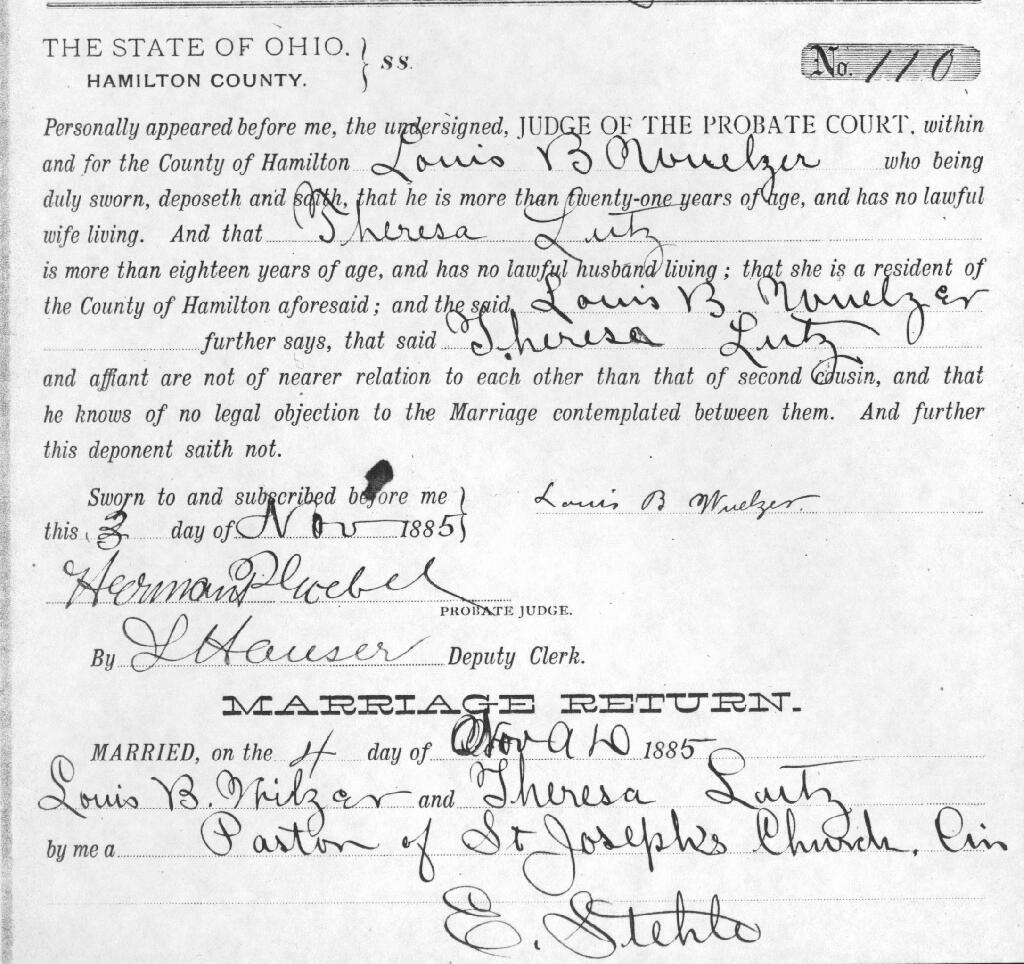 THE STATE OF OHIO. } ss.
HAMILTON COUNTY.
No. 110
Personally appeared before me, the undersigned, JUDGE OF THE PROBATE COURT, within
and for the County of Hamilton Louis B Nouelzer who being
duly sworn, deposeth and saith, that he is more than twenty-one years of age, and has no lawful
wife living. And that Theresa Lutz
is more than eighteen years of age, and has no lawful husband living; that she is a resident of
the County of Hamilton aforesaid; and the said Louis B. Nouelzer
further says, that said Theresa Lutz
and affiant are not of nearer relation to each other than that of second cousin, and that
he knows of no legal objection to the Marriage contemplated between them. And further
this deponent saith not.
Sworn to and subscribed before me
this 3 day of Nov 1885
Louis B Wuelzer.
Herman P Goebel
PROBATE JUDGE.
By L Hauser Deputy Clerk.
MARRIAGE RETURN.
MARRIED, on the 4 day of Nov A D 1885
Louis B. Wilzer and Theresa Lutz
by me a Pastor of St Joseph's Church, Cin
E. Stehle